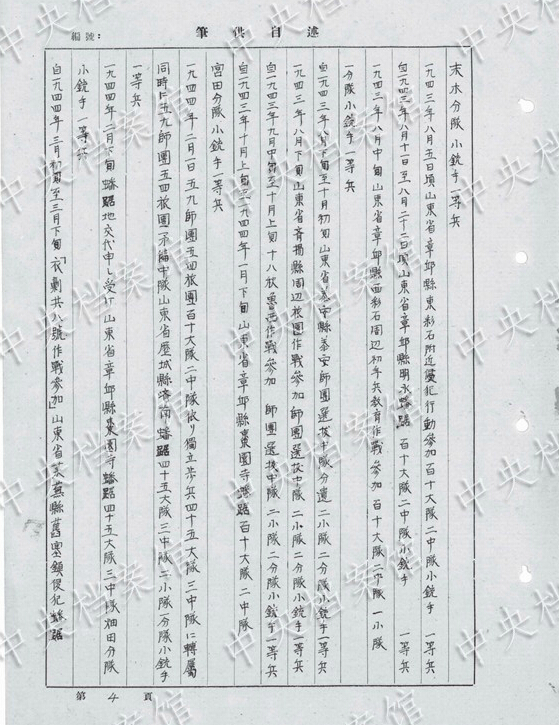 編號:
筆供自述
末木分隊 小銃手一等兵
一九四三年八月五日頃山東省章邱縣東彩石附近侵犯行動參加百十大隊二中隊小銃手 一等兵
自一九四三年八月十一日至八月二十二日頃山東省章邱縣明水蟠踞 百十大隊二中隊小銃手 一等兵
一九四三年八月中旬山東省章邱縣西彩石周辺初年兵教育作戰參加 百十大隊二中隊 一小隊
一分隊小銃手一等兵
自一九四三年八月下旬至十月初旬山東省泰安縣泰安師團選抜中隊分遣二小隊二分隊小銃手一等兵
一九四三年八月下旬山東省 縣周辺旅團作戰參加師團選抜中隊 二小隊二分隊小銃手一等兵
自一九四三年九月中旬至十月上旬十八秋魯西作戰參加 師團選抜中隊 二小隊二分隊小銃手一等兵
自一九四三年十月上旬至一九四四年一月下旬山東省章邱縣東園寺蟠踞百十大隊 二中隊
宮田分隊小銃手一等兵
一九四四年二月一日五九師團五四旅團百十大隊二中隊依り獨立歩兵四十五大隊 三中隊に轉屬
同時に五九師團五四旅團 予備中隊山東省歷城縣濟南蟠踞四十五大隊三中隊二小隊 分隊小銃手
一等兵
一九四四年二月下旬蟠踞地交代申し受け山東省章邱縣東園寺蟠踞四十五大隊三中隊畑田分隊
小銃手一等兵
自一九四四年三月初旬至三月下旬「衣 共八號作戰參加」山東省萊蕪縣 鎮侵犯蟠踞
第 4 頁
中央档案馆